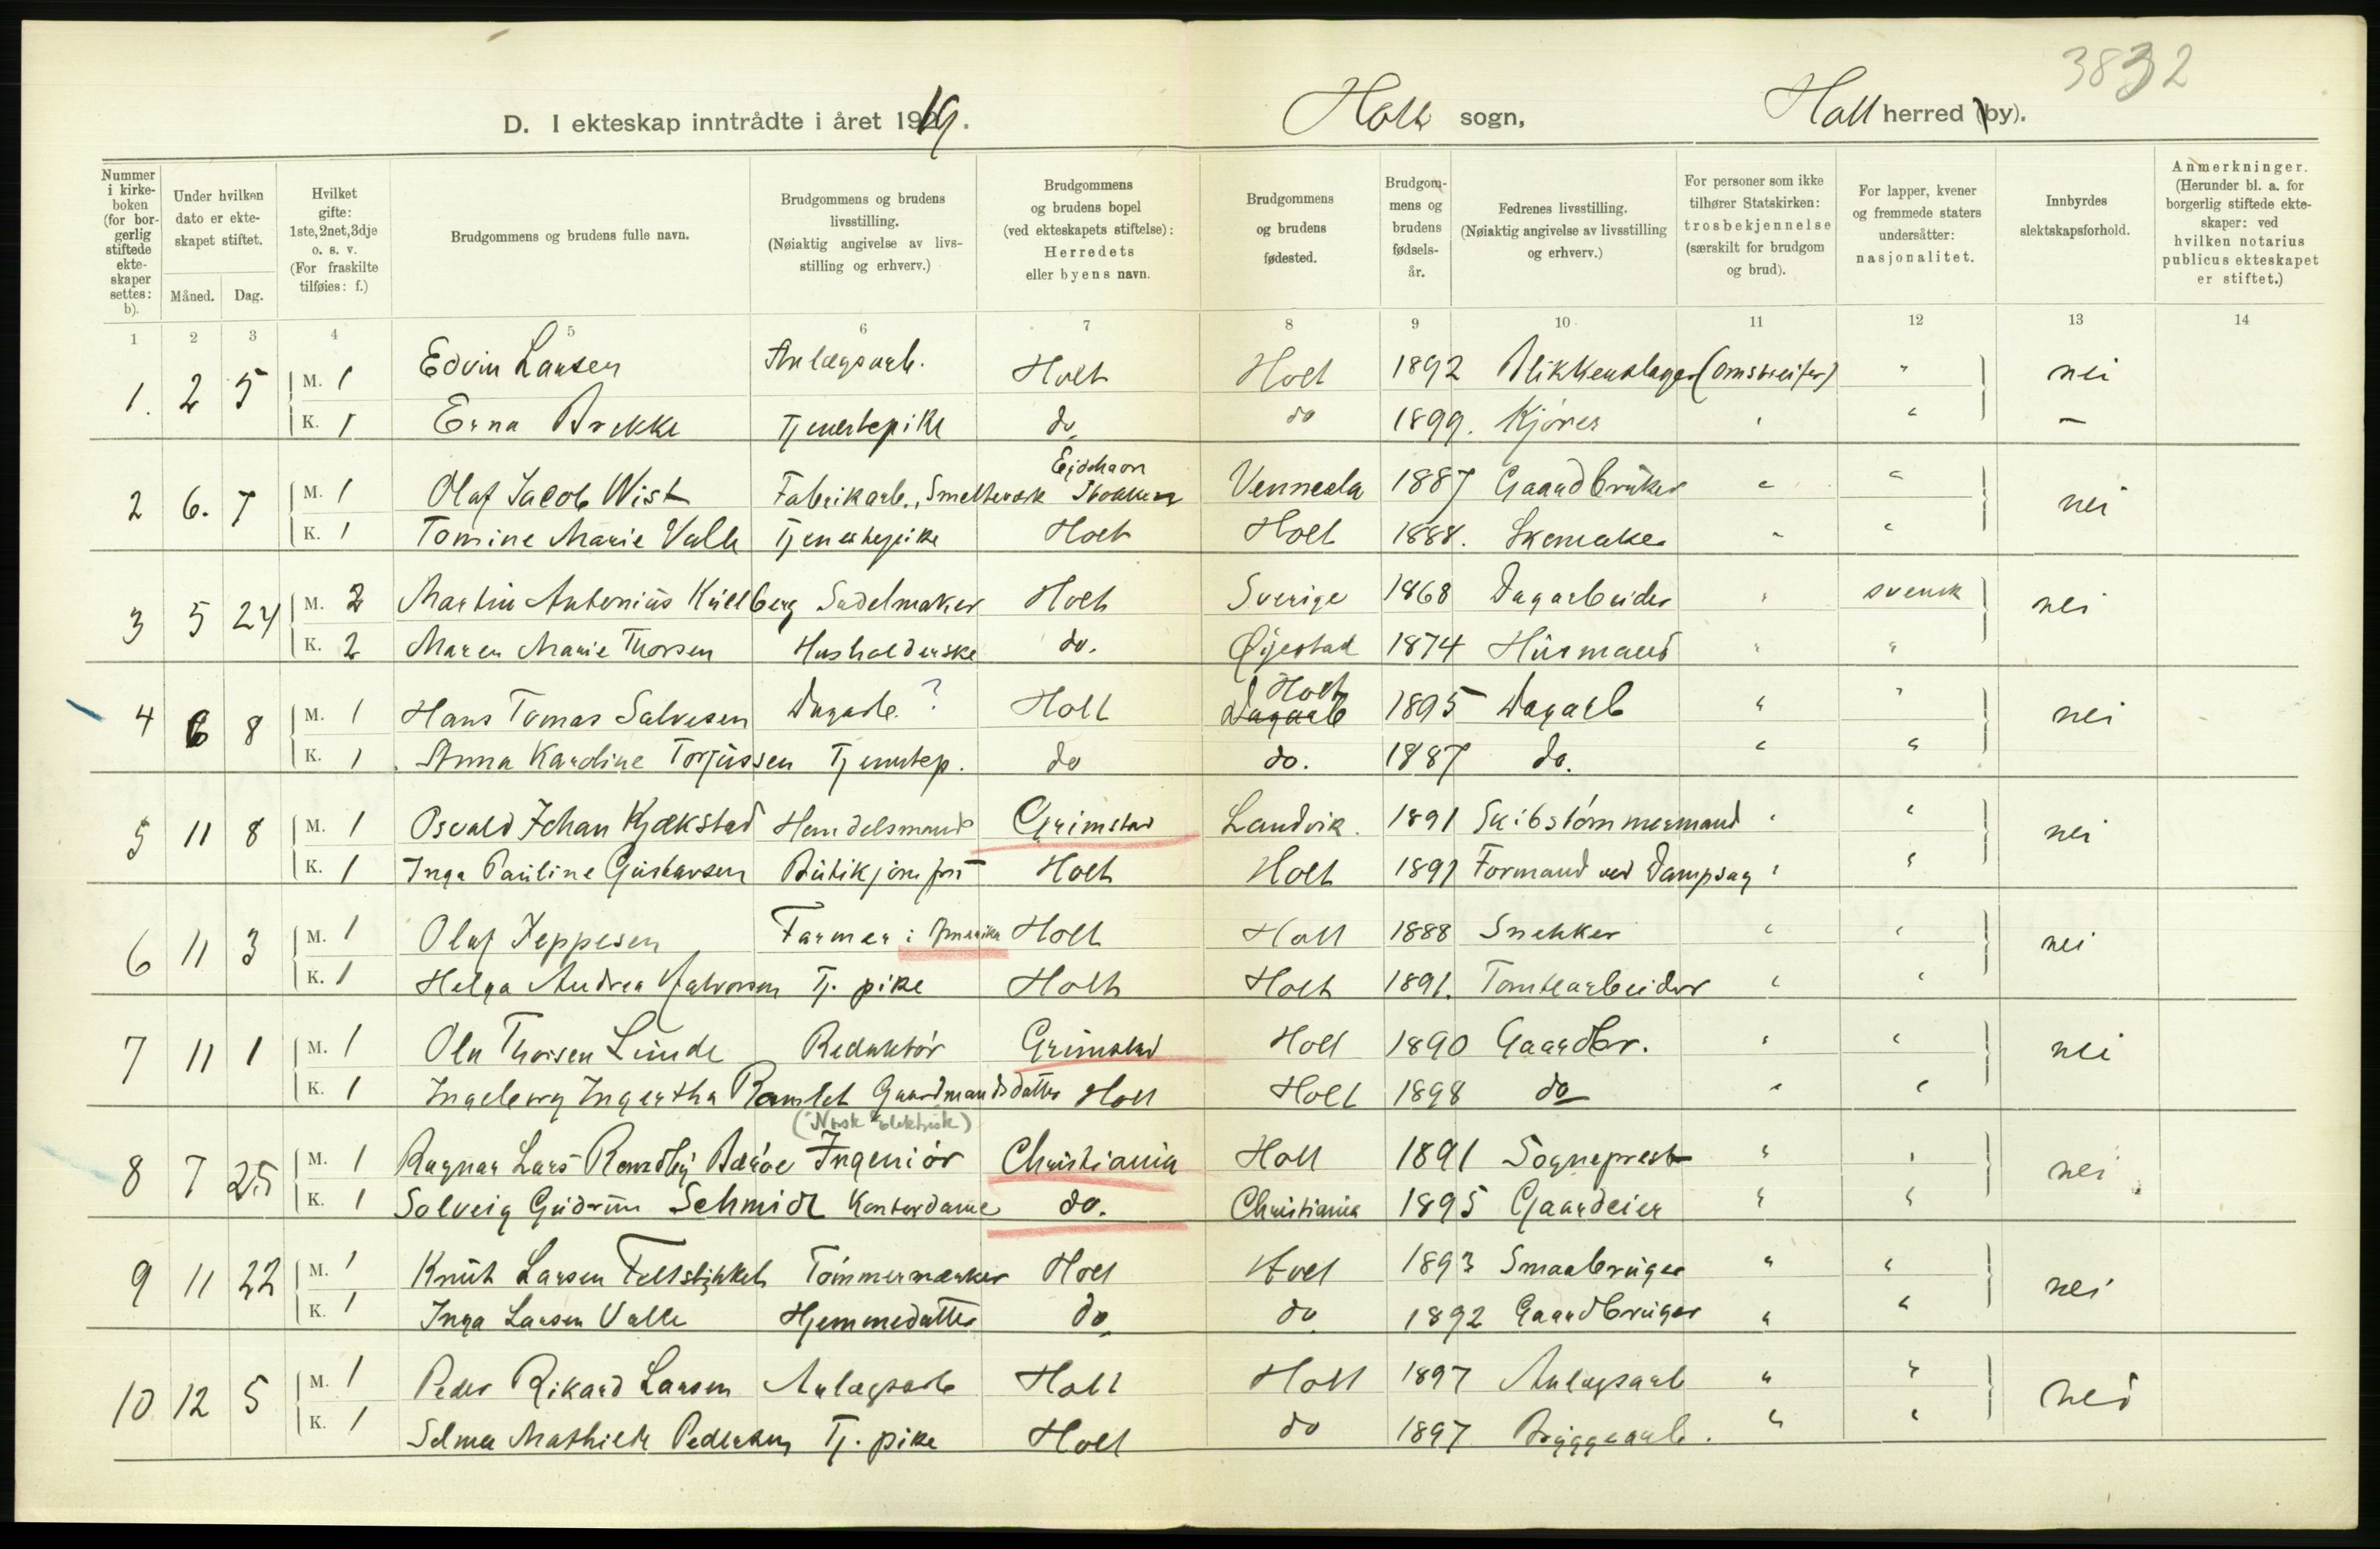 3832
D. I ekteskap inntrådte i året 1919. Holt sogn, Holt herred (by).
Nummer i kirkeboken (for borgerlig stiftede ekteskaper settes: b).
Under hvilken dato er ekteskapet stiftet.
Måned. Dag.
Hvilket gifte: 1ste, 2net, 3dje o. s. v. (For fraskilte tilføies: f.)
Brudgommens og brudens fulle navn.
Brudgommens og brudens livsstilling. (Nøiaktig angivelse av livsstilling og erhverv.)
Brudgommens og brudens bopel (ved ekteskapets stiftelse): Herredets eller byens navn.
Brudgommens og brudens fødested.
Brudgommens og brudens fødselsår.
Fedrenes livsstilling. (Nøiaktig angivelse av livsstilling og erhverv.)
For personer som ikke tilhører Statskirken: trosbekjennelse (særskilt for brudgom og brud).
For lapper, kvener og fremmede staters undersåtter: nasjonalitet.
Innbyrdes slektskapsforhold.
Anmerkninger. (Herunder bl. a. for borgerlig stiftede ekteskaper: ved hvilken notarius publicus ekteskapet er stiftet.)
1 2 3 4 5 6 7 8 9 10 11 12 13 14
1. 2 5 M. 1 Edvin Larsen Anlægsarb. Holt Holt 1892 Blikkenslager (Omstreifer) " nei
K. 1 Erna Brekke Tjenestepike do do 1899. Kjører " " —
2 6. 7 M. 1 Olaf Jacob Wist Fabrikarb., Smelteverk Eydehavn Stokken Vennesla 1887 Gaardbruker " " nei
K. 1 Tomine Marie Valle Tjenestepike Holt Holt 1888. Skomaker " "
3 5 24 M. 2 Martin Antonius Kullberg Sadelmaker Holt Sverige 1868 Dagarbeider " svensk nei
K. 2 Maren Marie Thorsen Husholderske do. Øjestad 1874 Husmand " "
4 6 8 M. 1 Hans Tomas Salvesen Dagarb. ? Holt Dagarb Holt 1895 Dagarb " " nei
K. 1 Anna Karoline Torjussen Tjenestep. do do. 1887 do. " "
5 11 8 M. 1 Osvald Johan Kjækstad Handelsmand Grimstad Landvik. 1891 Skibstømmermand " " nei
K. 1 Inga Pauline Gustavsen Butikjomfru Holt Holt 1891 Formand ved Dampsag " "
6 11 3 M. 1 Olaf Jeppesen Farmer i Amerika Holt Holt 1888 Snekker " " nei
K. 1 Helga Andrea Halvorsen Tj. pike Holt Holt 1891. Tomtearbeider " "
7 11 1 M. 1 Ole Thorsen Lunde Redaktør Grimstad Holt 1890 Gaardbr. " " nei
K. 1 Ingeborg Ingertha Ramlet Gaardmandsdatter Holt Holt 1898 do " "
(Norsk Elektrisk)
8 7 25 M. 1 Ragnar Lars Rondby Bærøe Ingeniør Christiania Holt 1891 Sogneprest " " nei
K. 1 Solveig Gudrun Schmidt Kontordame do. Christiania 1895 Gaardeier " "
9 11 22 M. 1 Knut Larsen Fellstikket Tømmermærker Holt Holt 1893 Smaabruger " " nei
K. 1 Inga Larsen Valle Hjemmedatter do do 1892 Gaardbruger " "
10 12 5 M. 1 Peder Rikard Larsen Anlægsarb Holt Holt 1897 Anlægsarb " " nei
K. 1 Selma Mathilde Pedersen Tj. pike Holt do 1897 Bryggearb. " "